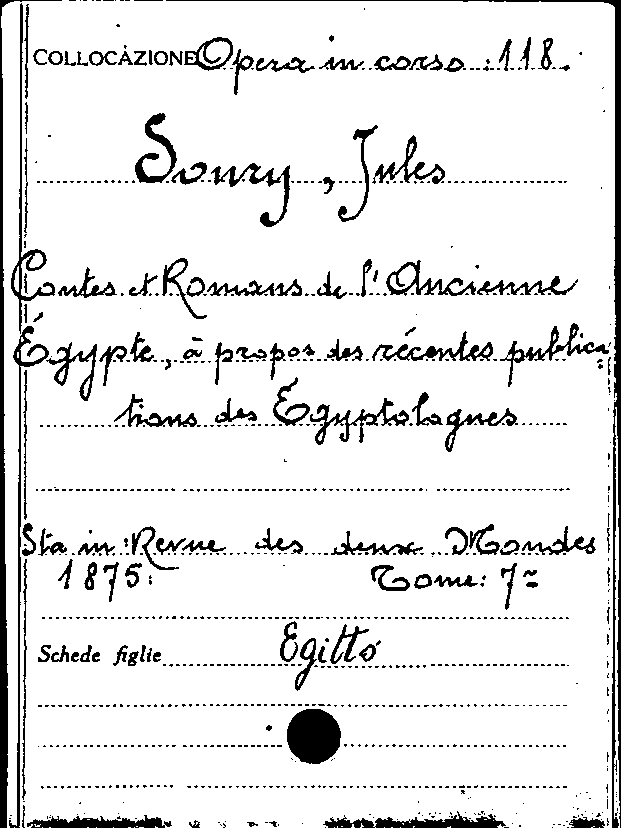 COLLOCAZIONE Opera in corso : 118.
Soury, Jules
Contes et Romans de l'Ancienne
Égypte, à propos des récentes publica=
tions des Égyptologues
Sta in: Revue des deux Mondes
1875: Tome: 7=
Schede figlie Egitto